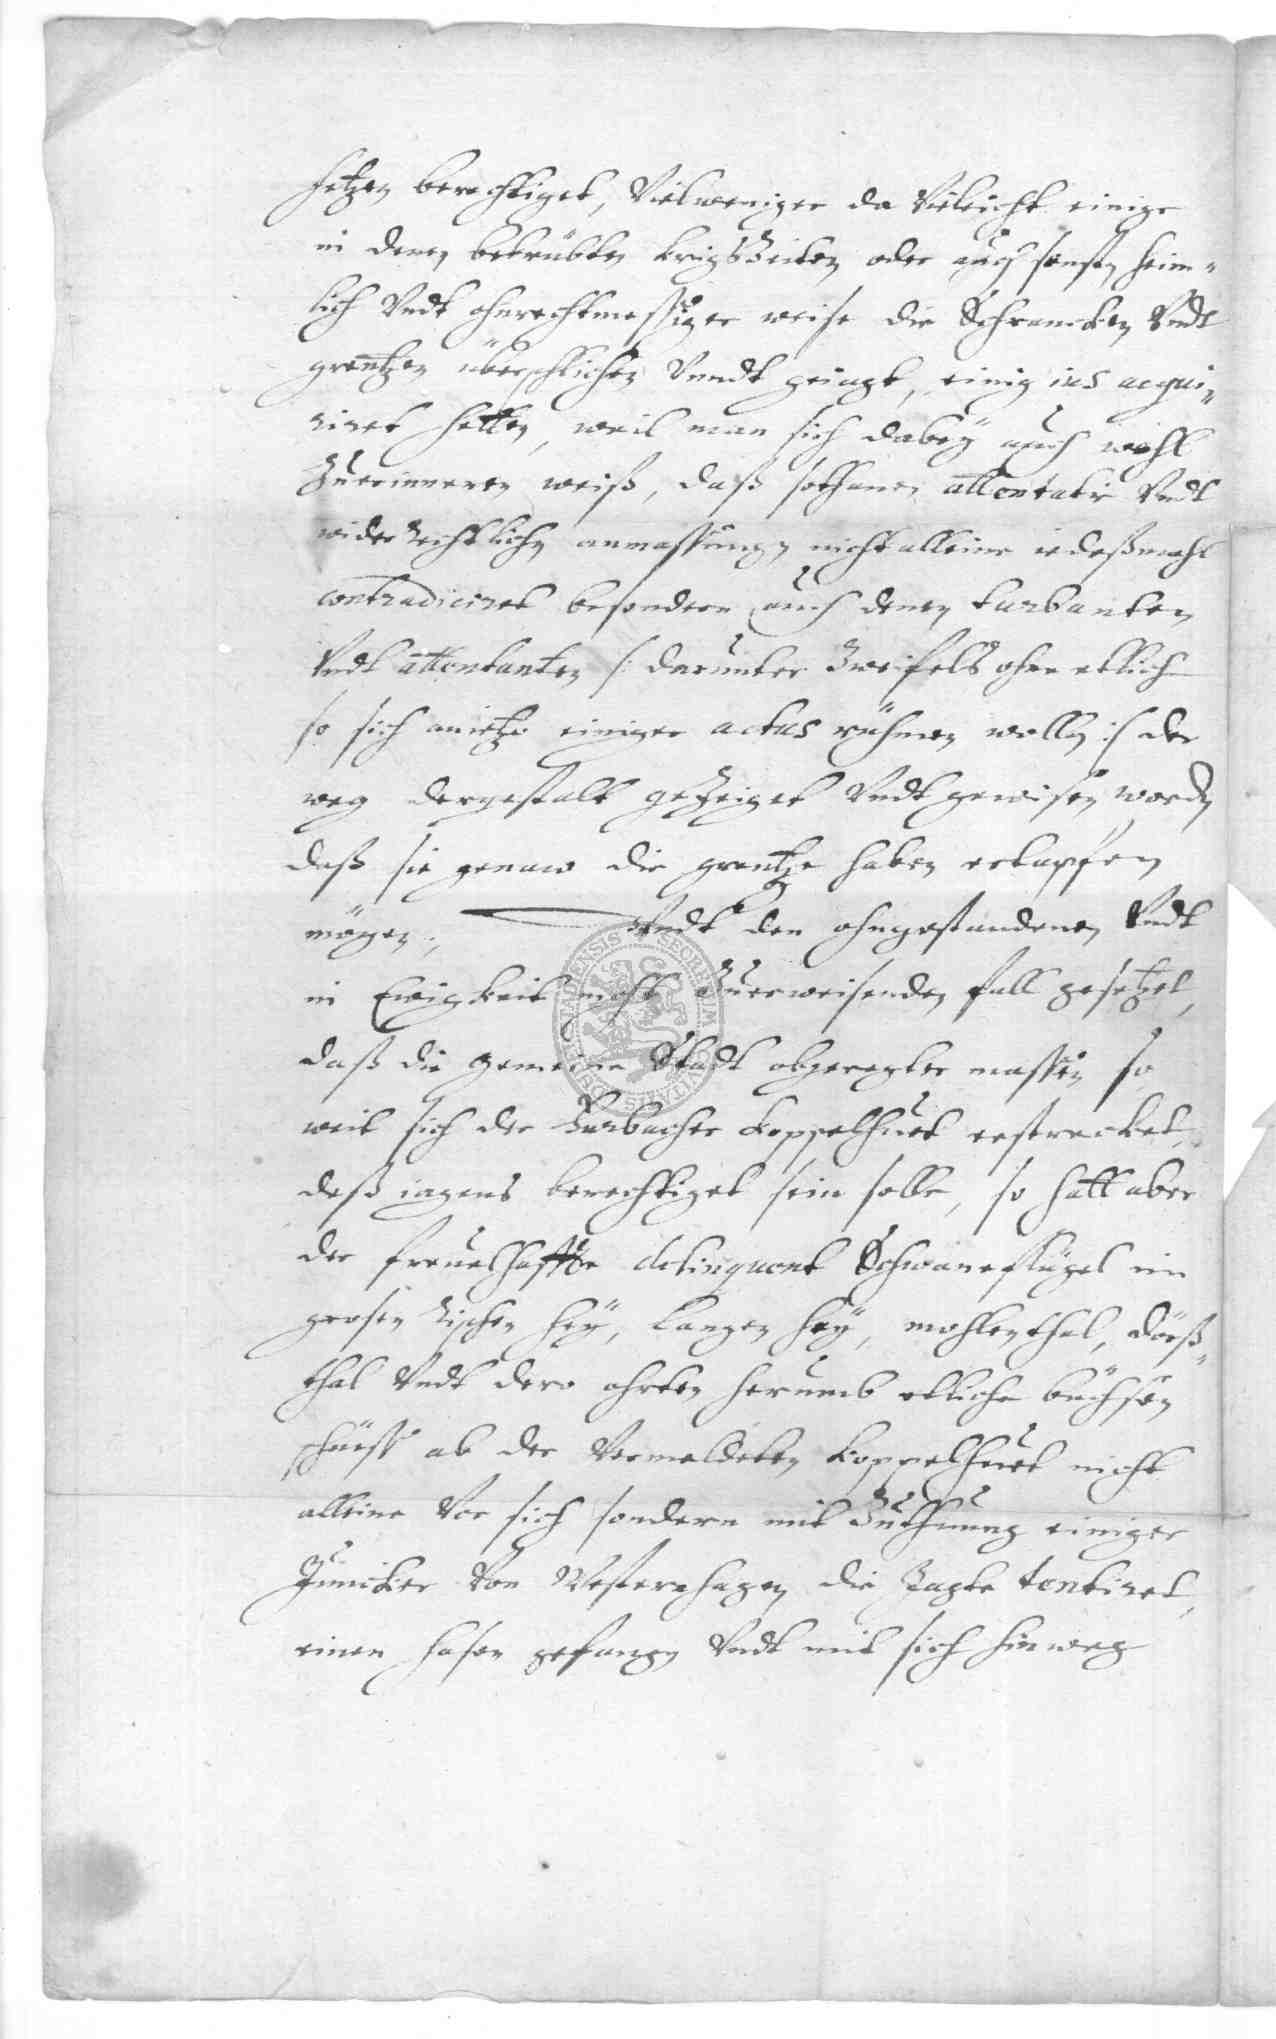 hetzen berechtiget, Vielweniger da Vieleicht einige
in denen betrübten krigsZeiten oder auch sonsten heim„
lich Vndt ohnrechtmessiger weise die Schrancken Vndt
grentzen überschlichen Vnndt geiagt, einig ius acqui„
riret hetten, weil man sich dabeÿ auch wohl
Zuerinneren weiß, daß sothanen attentatis Vndt
widerrechtlichen anmassungen nicht alleine iedeßmahl
contradiciret besondern auch denen turbanten
Vndt attentanten /: darunter Zweifels ohne etliche
so sich anietzo einiger actus rühmen wollen :/ der
weg dergestalt geZeiget Vndt gewisen worden
daß sie genaw die grentze haben ertapfen
mögen, Vndt den ohngestandenen Vndt
in Ewigkeit nicht Zuerweisenden fall gesetzet,
daß die gemeine Stadt obgeregter massen so
weit sich der Koppelhuet erstrecket,
deß iagens berechtiget sein solle, so hatt aber
der freuelhaffte delinquent Schwaneflügel im
grosen heÿ, Langen heÿ, mohlenthal, dörß„
thal Vndt dero ohrten herumb etliche büchsen
schüess ab der Vermeldeten Koppelhuet nicht
alleine Vor sich sondern mit Zuthuung einiger
Juncker Von Westernhagen die Jagte tentiret,
einen hasen gefangen Vndt mit sich hinweg
SECRETUM CIVITATIS DUDERSTADIENSIS